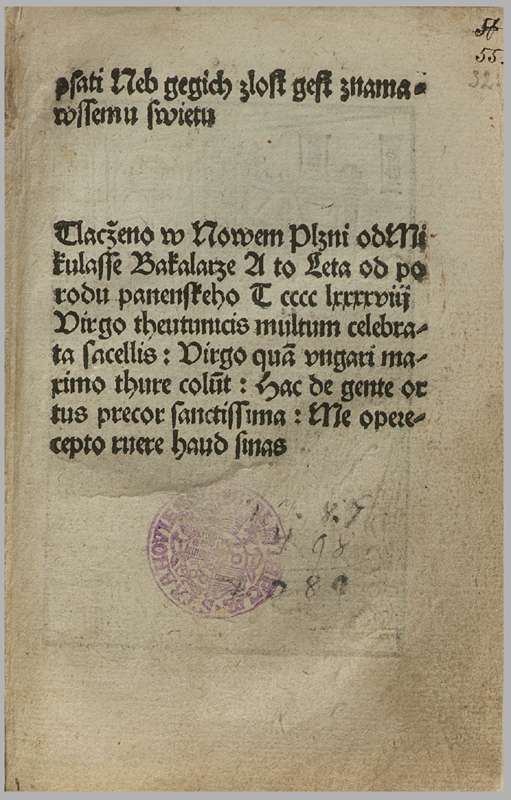 55.
32.
psati Neb gegich zlost gest znama-
wssemu swietu
Tlaczeno w Nowem Plzni od Mi
kulasse Bakalarze A to Leta od po
rodu panenskeho T cccc lxxxxviij
Virgo theutunicis multum celebra-
ta sacellis : Virgo quā vngari ma-
ximo thure colūt : Hac de gente or
tus precor sanctissima : Me opere-
cepto ruere haud sinas